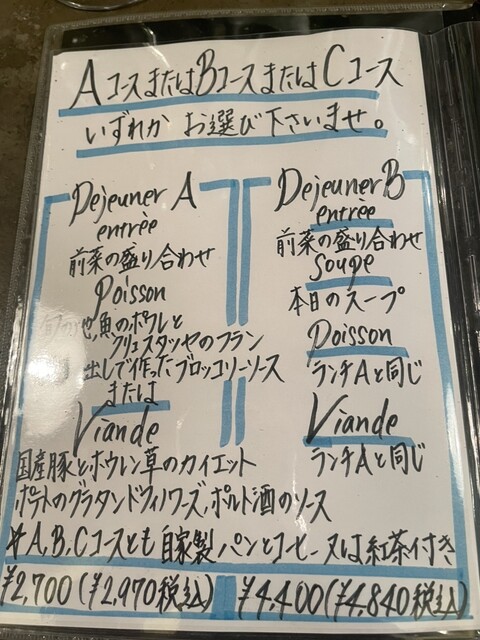 AコースまたはBコースまたはCコース
いずれか お選び下さいませ。
Dejeuner A
entrèe
前菜の盛り合わせ
Poisson
魚のポワレと
クリュスタッセのフラン
出しで作ったブロッコリーソース
または
Viande
国産豚とホウレン草のカイエット
ポテトのグラタンドフィノワーズ,ポルト酒のソース
Dejeuner B
entrèe
前菜の盛り合わせ
Soupe
本日のスープ
Poisson
ランチAと同じ
Viande
ランチAと同じ
*A,B,Cコースとも 自家製 パンとコーヒー又は紅茶付き
¥2,700(¥2,970税込)
¥4,400(¥4,840税込)